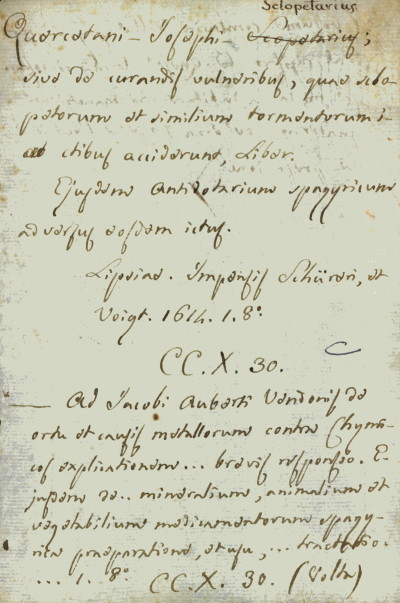 Sclopetarius
Quercetani – Josephi Scopetarius;
sive de curandis vulneribus, quae sclo-
petorum et similium tormentorum i-
ctibus acciderunt, Liber.
Ejusdem Antidotarium spagyricum
adversus eosdem ictus.
Lipsiae. Impensis Schüreri, et
Voigt. 1614. 1. 8°.
CC. X. 30.
— Ad Jacobi Auberti Vendonis de
ortu et causis metallorum contra Chymi-
cos explicationem... brevis responsio. E-
jusdem de.. mineralium, animalium et
vegetabilium medicamentorum spagy-
rica praeparatione, et usu, ... tractatio.
... 1. 8° CC. X. 30. (Volta)